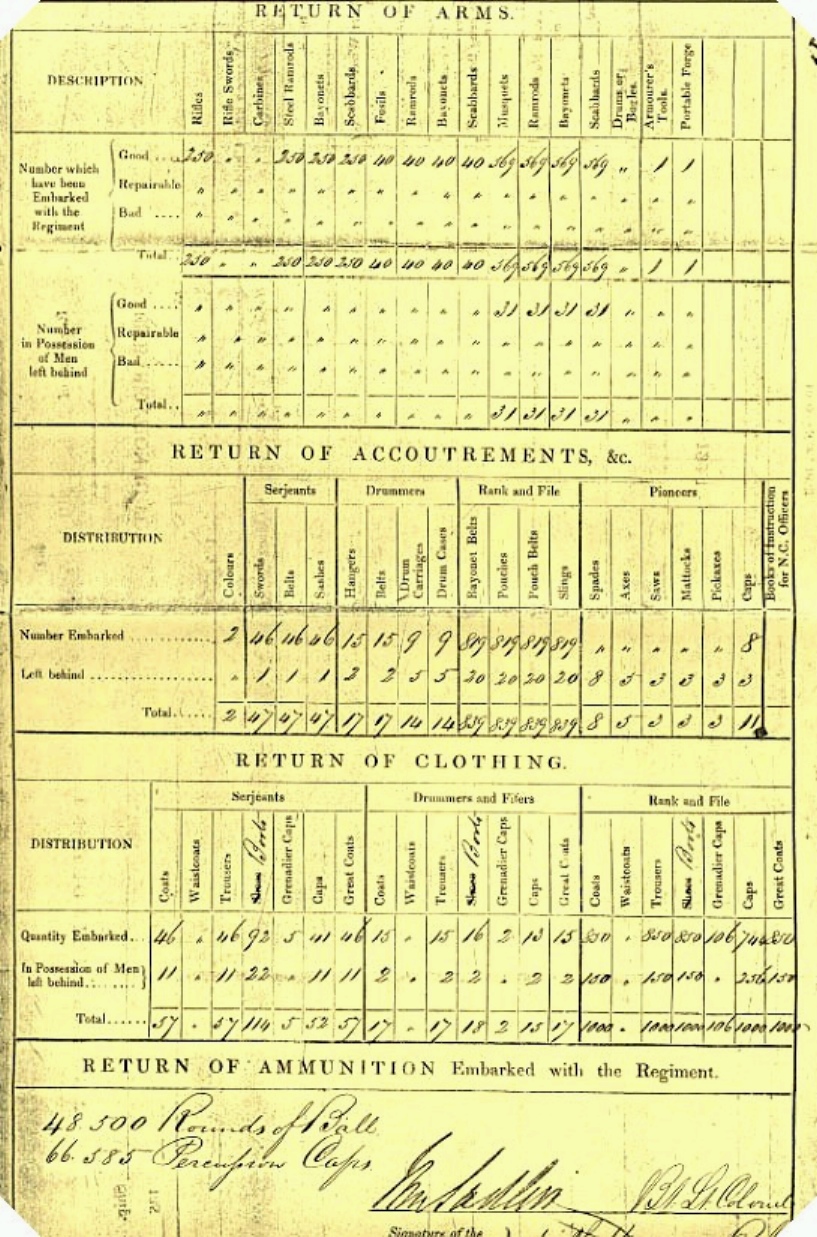 RETURN OF ARMS.
DESCRIPTION Rifles Rifle Swords Carbines Steel Ramrods Bayonets Scabbards Fusils Ramrods Bayonets Scabbards Musquets Ramrods Bayonets Scabbards Drums or Bugles Armourer's Tools. Portable Forge
Number which have been Embarked with the Regiment
Good .... 250 " " 250 250 250 40 40 40 40 569 569 569 569 " 1 1
Repairable " " " " " " " " " " " " " " " " "
Bad .... " " " " " " " " " " " " " " " " "
Total. 250 " " 250 250 250 40 40 40 40 569 569 569 569 " 1 1
Number in Possession of Men left behind
Good .... " " " " " " " " " " 31 31 31 31 " " "
Repairable " " " " " " " " " " " " " " " " "
Bad ...... " " " " " " " " " " " " " " " " "
Total.. " " " " " " " " " " 31 31 31 31 " " "
RETURN OF ACCOUTREMENTS, &c.
Serjeants Drummers Rank and File Pioneers
DISTRIBUTION Colours Swords Belts Sashes Hangers Belts Drum Carriages Drum Cases Bayonet Belts Pouches Pouch Belts Slings Spades Axes Saws Mattocks Pickaxes Caps Books of Instruction for N.C. Officers
Number Embarked .............. 2 46 46 46 15 15 9 9 819 819 819 819 " " " " " 8
Left behind ..................... " 1 1 1 2 2 5 5 20 20 20 20 8 5 3 3 3 3
Total...... 2 47 47 47 17 17 14 14 839 839 839 839 8 5 3 3 3 11
RETURN OF CLOTHING.
Serjeants Drummers and Fifers Rank and File
DISTRIBUTION Coats Waistcoats Trousers Shoes Boots Grenadier Caps Caps Great Coats Coats Waistcoats Trousers Shoes Boots Grenadier Caps Caps Great Coats Coats Waistcoats Trousers Shoes Boots Grenadier Caps Caps Great Coats
Quantity Embarked... 46 " 46 92 5 41 46 15 " 15 16 2 13 15 850 " 850 850 106 744 850
In Possession of Men left behind........ 11 " 11 22 " 11 11 2 " 2 2 " 2 2 150 " 150 150 " 256 150
Total...... 57 " 57 114 5 52 57 17 " 17 18 2 15 17 1000 " 1000 1000 106 1000 1000
RETURN OF AMMUNITION Embarked with the Regiment.
48.500 Rounds of Ball
66.585 Percussion Caps
Bt. Lt. Colonel
Signature of the